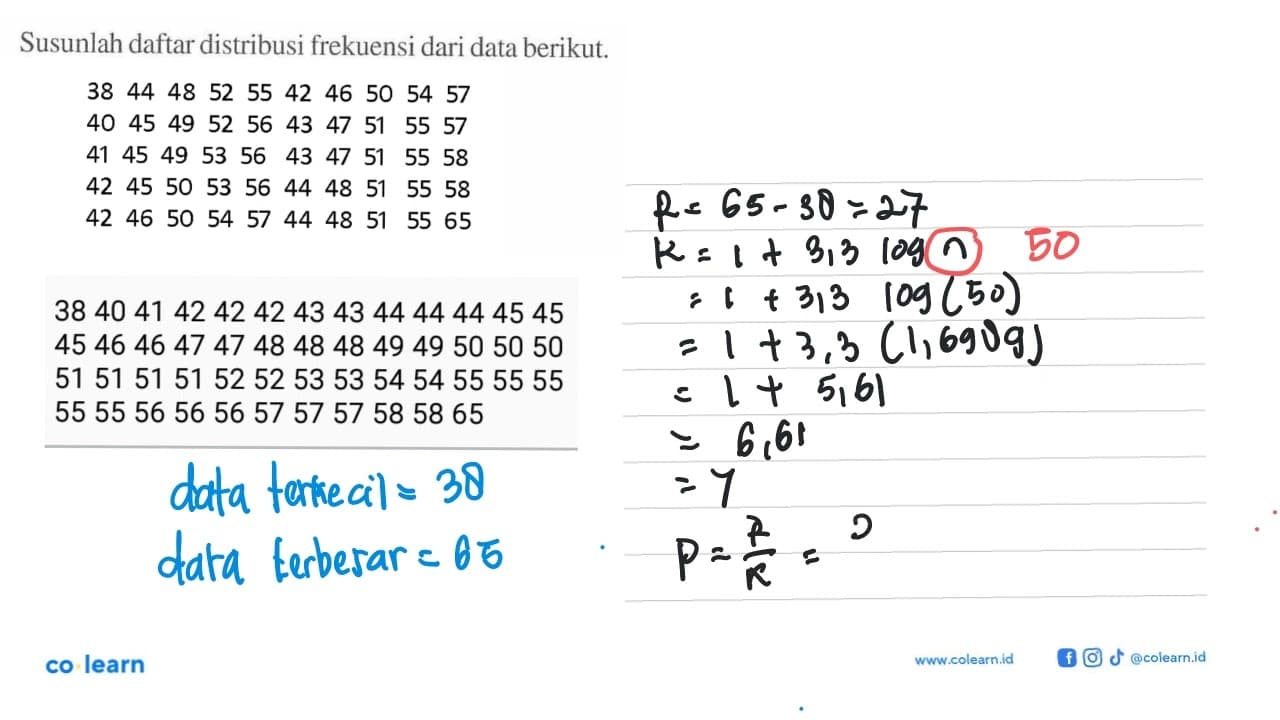 Susunlah daftar distribusi frekuensi dari data berikut.
38 44 48 52 55 42 46 50 54 57
40 45 49 52 56 43 47 51 55 57
41 45 49 53 56 43 47 51 55 58
42 45 50 53 56 44 48 51 55 58
42 46 50 54 57 44 48 51 55 65
38 40 41 42 42 42 43 43 44 44 44 45 45
45 46 46 47 47 48 48 48 49 49 50 50 50
51 51 51 51 52 52 53 53 54 54 55 55 55
55 55 56 56 56 57 57 57 58 58 65
data terkecil = 38
data terbesar = 65
R = 65 - 38 = 27
K = 1 + 3,3 log n 50
= 1 + 3,3 log (50)
= 1 + 3,3 (1,6989)
= 1 + 5,61
= 6,61
= 7
P = R/K =
co learn
www.colearn.id @colearn.id